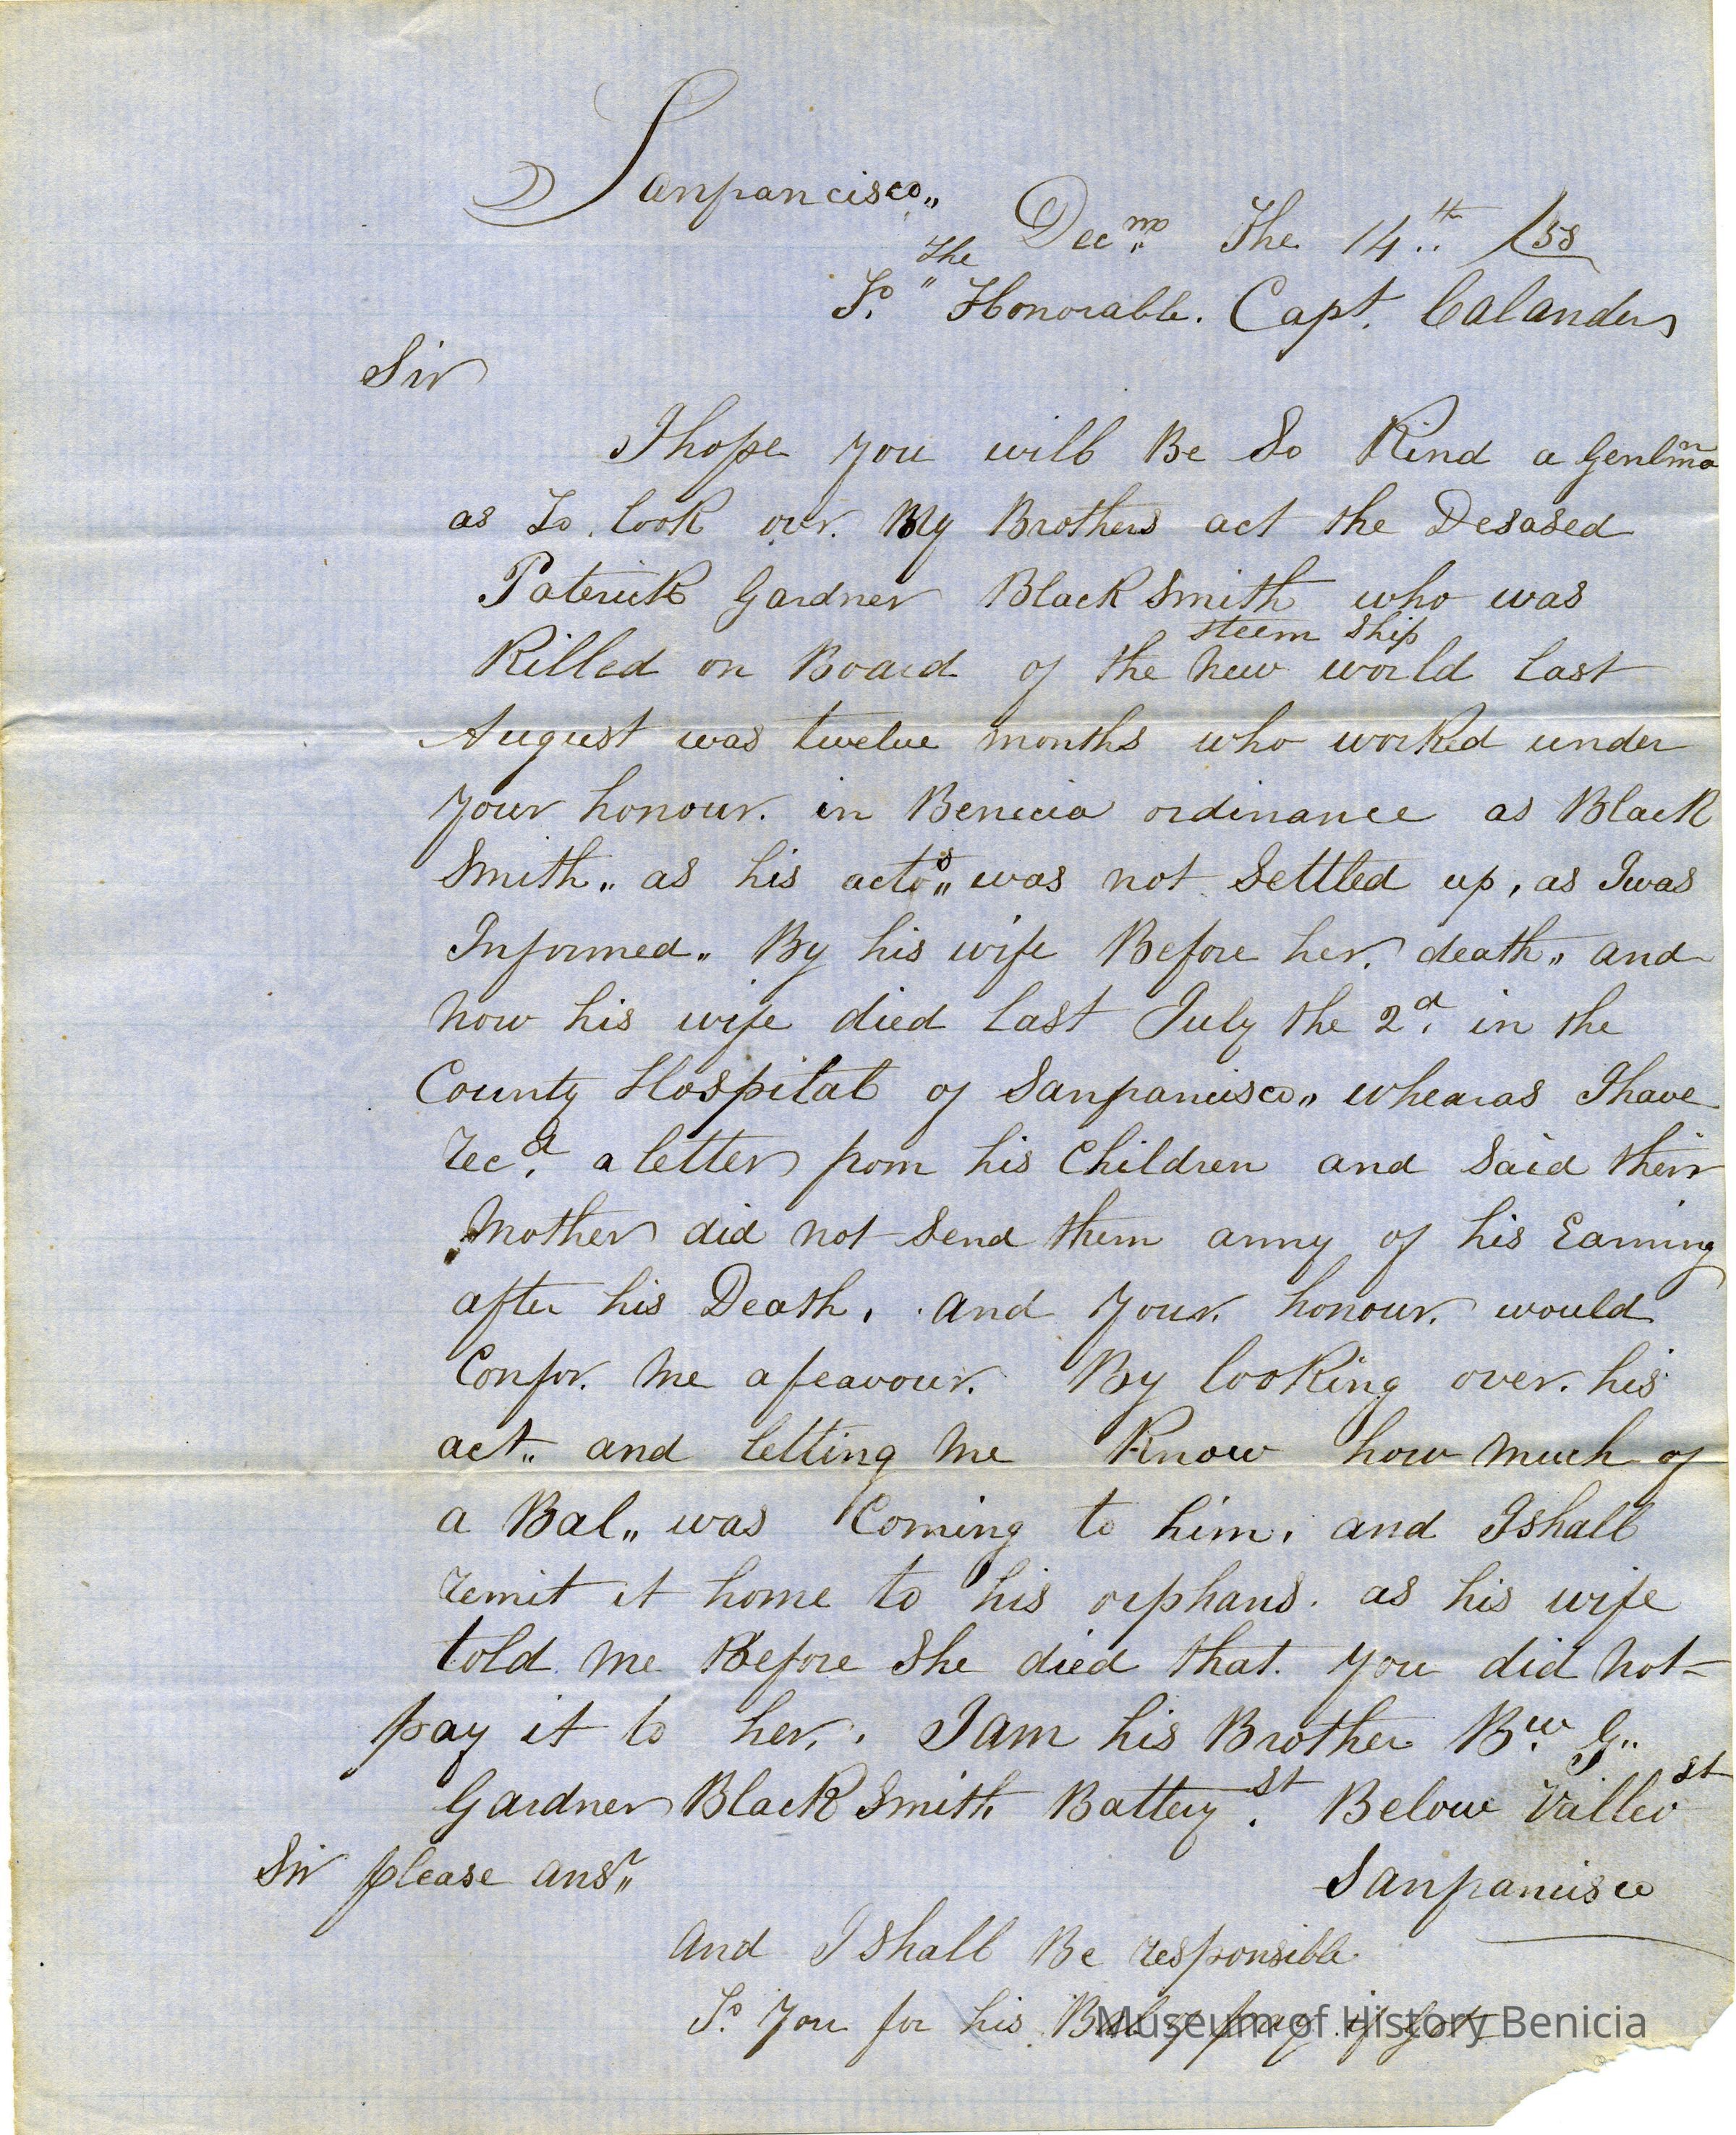 Sanfrancisco"
Decmo The 14th /58
To. the " Honorable. Capt. Calanders
Sir
I hope you will Be So Kind a Genlman
as To look ovr. My Brothers act the Desased
Paterick Gardner Black Smith who was
Killed on Board of the steem ship New world last
August was twelve months who worked under
your honour. in Benicia ordinance as Black
Smith" as his acts" was not Settled up, as I was
Informed" By his wife Before her. death" and
now his wife died last July the 2d. in the
County Hospital of Sanfrancisco" whearas I have
recd. a letter from his Children and Said their
Mother did not Send them anny of his Earning
after his Death, and your. honour. would
Confer. me a feavour. By looking over. his
act" and letting me Know how much of
a Bal" was Coming to him, and I shall
remit it home to his orphans. as his wife
told me Before She died that. you did not
pay it to her. I am his Brother G"
Gardner Black Smith Battery St. Below Valleo St
Sir please ansr"
Sanfrancisco
And I Shall Be responsible
To. You for his Bal of pay if
Museum of History Benicia